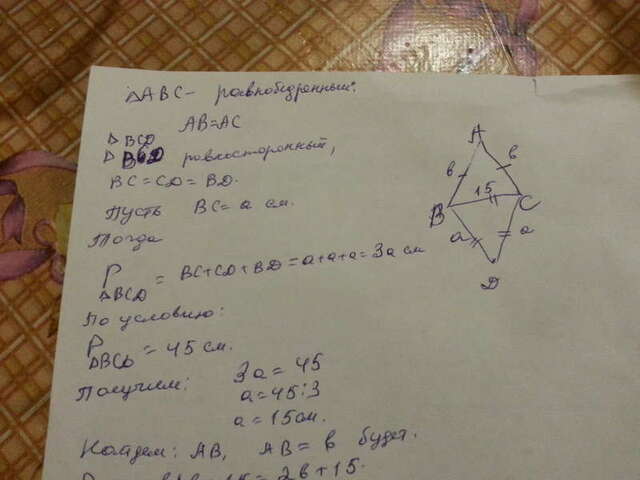 ΔABC – равнобедренный.
AB=AC
Δ BCD
Δ BCD равносторонный,
BC = CD = BD.
Пусть BC = a см.
Тогда
P = BC+CD+BD = a+a+a = 3a см
ΔBCD
По условию:
P = 45 см.
ΔBCD
Получим: 3a = 45
a = 45:3
a = 15 см.
Найдем: AB, AB = b будет.
= 2b + 15.
A
b b
15
B C
a a
D